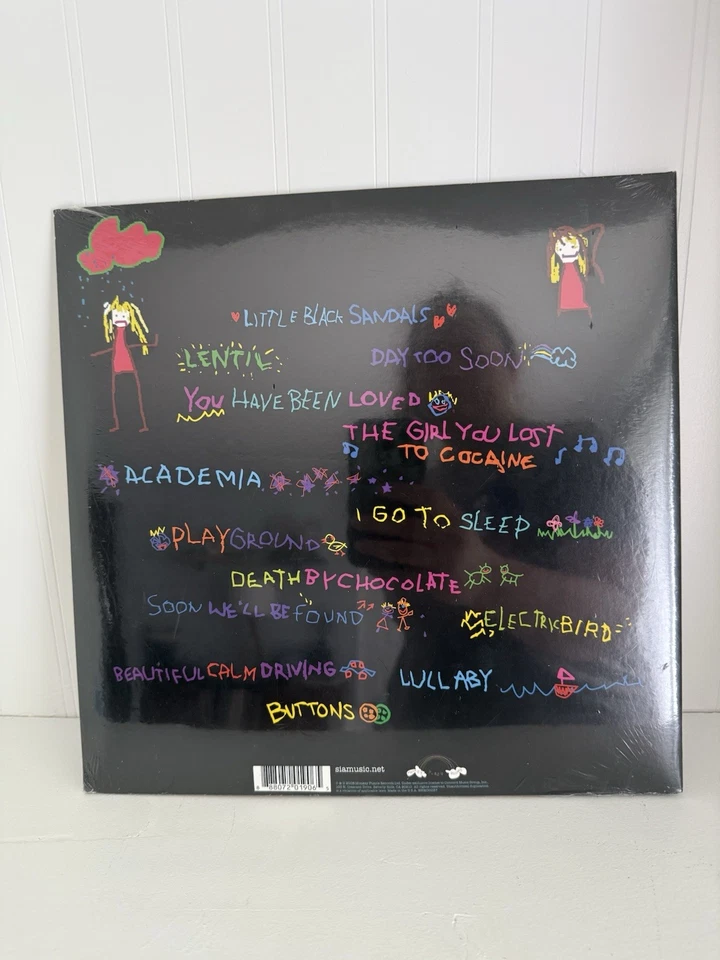 LITTLE BLACK SANDALS
LENTIL
DAY TOO SOON
YOU HAVE BEEN LOVED
THE GIRL YOU LOST
TO COCAINE
ACADEMIA
I GO TO SLEEP
PLAYGROUND
DEATH BY CHOCOLATE
SOON WE'LL BE FOUND
ELECTRIC BIRD
BEAUTIFUL CALM DRIVING
LULLABY
BUTTONS
siamusic.net
8 88072 01906 5